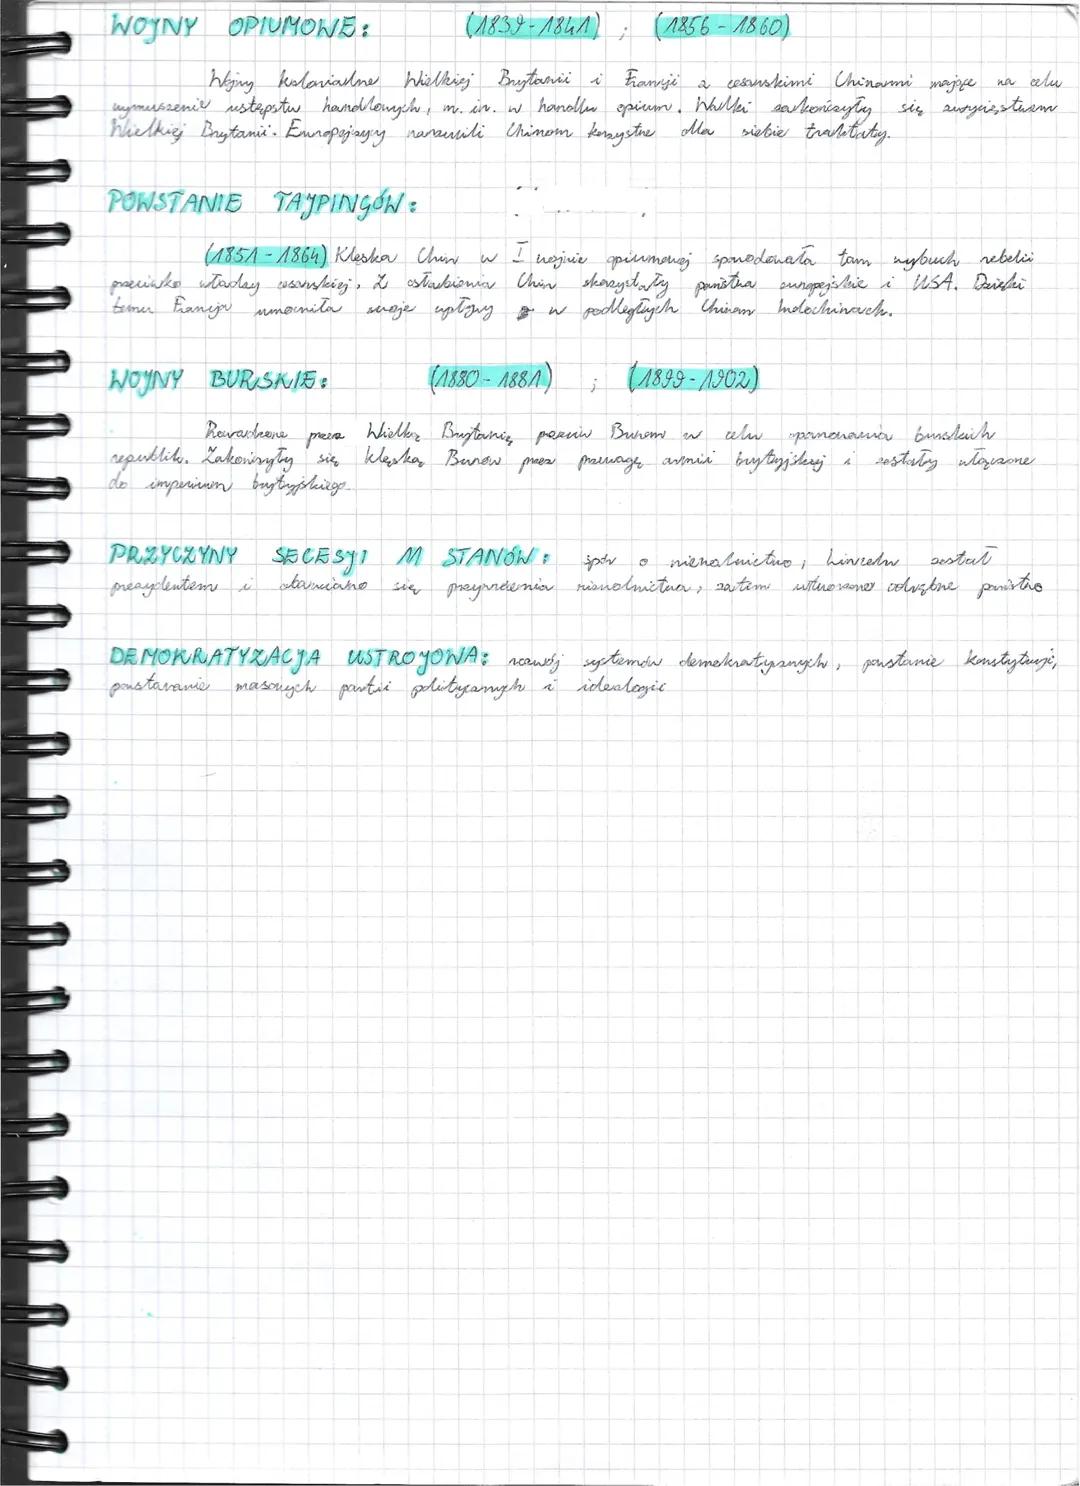 WOJNY OPIUMOWE: (1839-1841) ; (1856-1860)
Wojny kolonialne Wielkiej Brytanii i Francji z cesarskimi Chinami mające na celu
wymuszenie ustępstw handlowych, m. in. w handlu opium. Walki zakończyły się zwycięstwem
Wielkiej Brytanii. Europejczycy narzucili Chinom korzystne dla siebie traktaty.
POWSTANIE TAJPINGÓW:
(1851-1864) Klęska Chin w I wojnie opiumowej spowodowała tam wybuch rebelii
przeciwko władzy cesarskiej. Z osłabienia Chin skorzystały państwa europejskie i USA. Dzięki
temu Francja umocniła swoje wpływy w podległych Chinom Indochinach.
WOJNY BURSKIE: (1880-1881) ; (1899-1902)
Prowadzone przez Wielką Brytanię przeciw Burom w celu opanowania burskich
republik. Zakończyły się klęską Burów przez przewagę armii brytyjskiej i zostały włączone
do imperium brytyjskiego.
PRZYCZYNY SECESJI 11 STANÓW: spór o niewolnictwo, Lincoln został
prezydentem i obawiano się zniesienia niewolnictwa, zatem utworzono odrębne państwo
DEMOKRATYZACJA USTROJOWA: rozwój systemów demokratycznych, powstanie konstytucji,
powstawanie masowych partii politycznych i ideologii